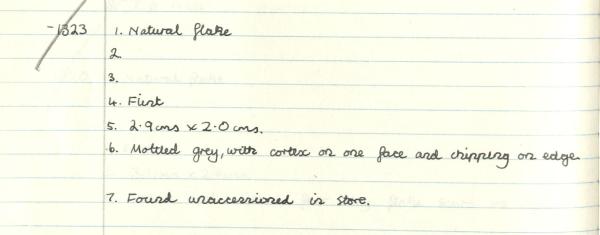 -1323 1. Natural flake
2.
3.
4. Flint
5. 2.9cms x 2.0cms.
6. Mottled grey, with cortex on one face and chipping on edge.
7. Found unaccessioned in store.